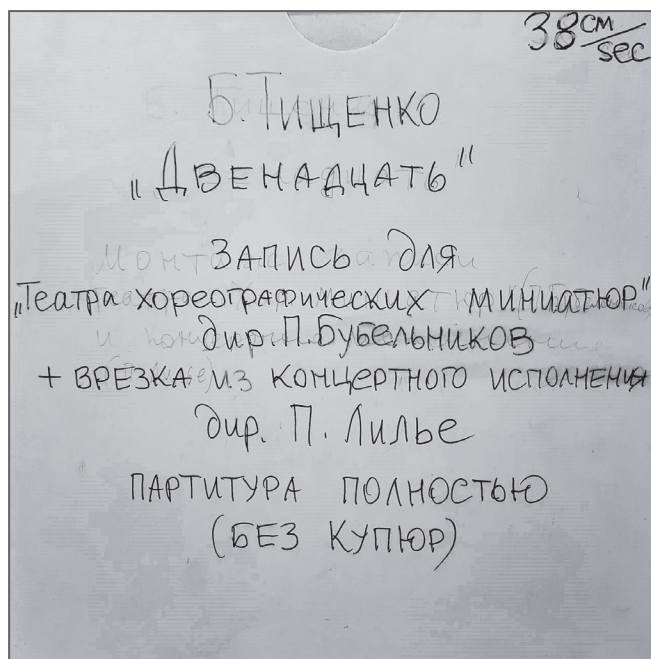 38 см/sec
Б. Тищенко
„Двенадцать"
Запись для
„Театра хореографических миниатюр"
дир П. Бубельников
+ врезка из концертного исполнения
дир. П. Лилье
партитура полностью
(без купюр)